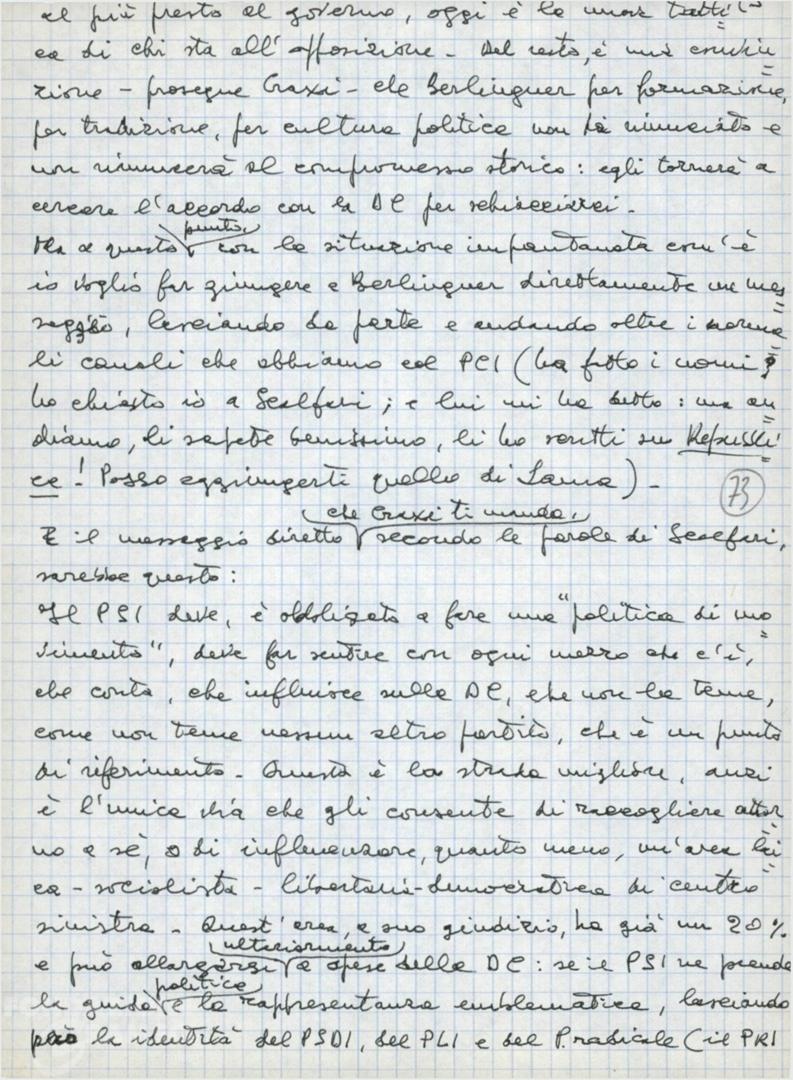 al più presto al governo, oggi è la unas tatti
ca di chi sta all'opposizione - Del resto, è mia convin
zione - prosegue Craxi - che Berlinguer per formazione,
per tradizione, per cultura politica non ha rinunciato e
non rinuncerà al compromesso storico: egli tornerà a
cercare l'accordo con la DC per schiacciarci.
punto,
Ma a questo con la situazione impantanata com'è
io voglio far giungere a Berlinguer direttamente un mes
saggio, lasciando da parte e andando oltre i norma
li canali che abbiamo col PCI (ha fatto i nomi?
ho chiesto io a Scalfari; e lui mi ha detto: ma an
diamo, li sapete benissimo, li ho scritti su Repubbli
ca! Posso aggiungerti quello di Tanna) -
73
che Craxi ti manda,
E il messaggio diretto secondo le parole di Scalfari,
sarebbe questo:
Il PSI deve, è obbligato a fare una "politica di mo
vimento", deve far sentire con ogni mezzo che c'è,
che conta, che influisce sulla DC, che non la teme,
come non teme nessun altro partito, che è un punto
di riferimento - Questa è la strada migliore, anzi
è l'unica via che gli consente di raccogliere attor
no a sé, o di influenzare, quanto meno, un'area lai
ca - socialista - libertaria - democratica di centro
sinistra - Quest'area, a suo giudizio, ha già un 20%
ulteriormente
e può allargarsi a spese della DC: se il PSI ne prende
politica
la guida e la rappresentanza emblematica, lasciando
però la identità del PSDI, del PLI e del P. radicale (il PRI